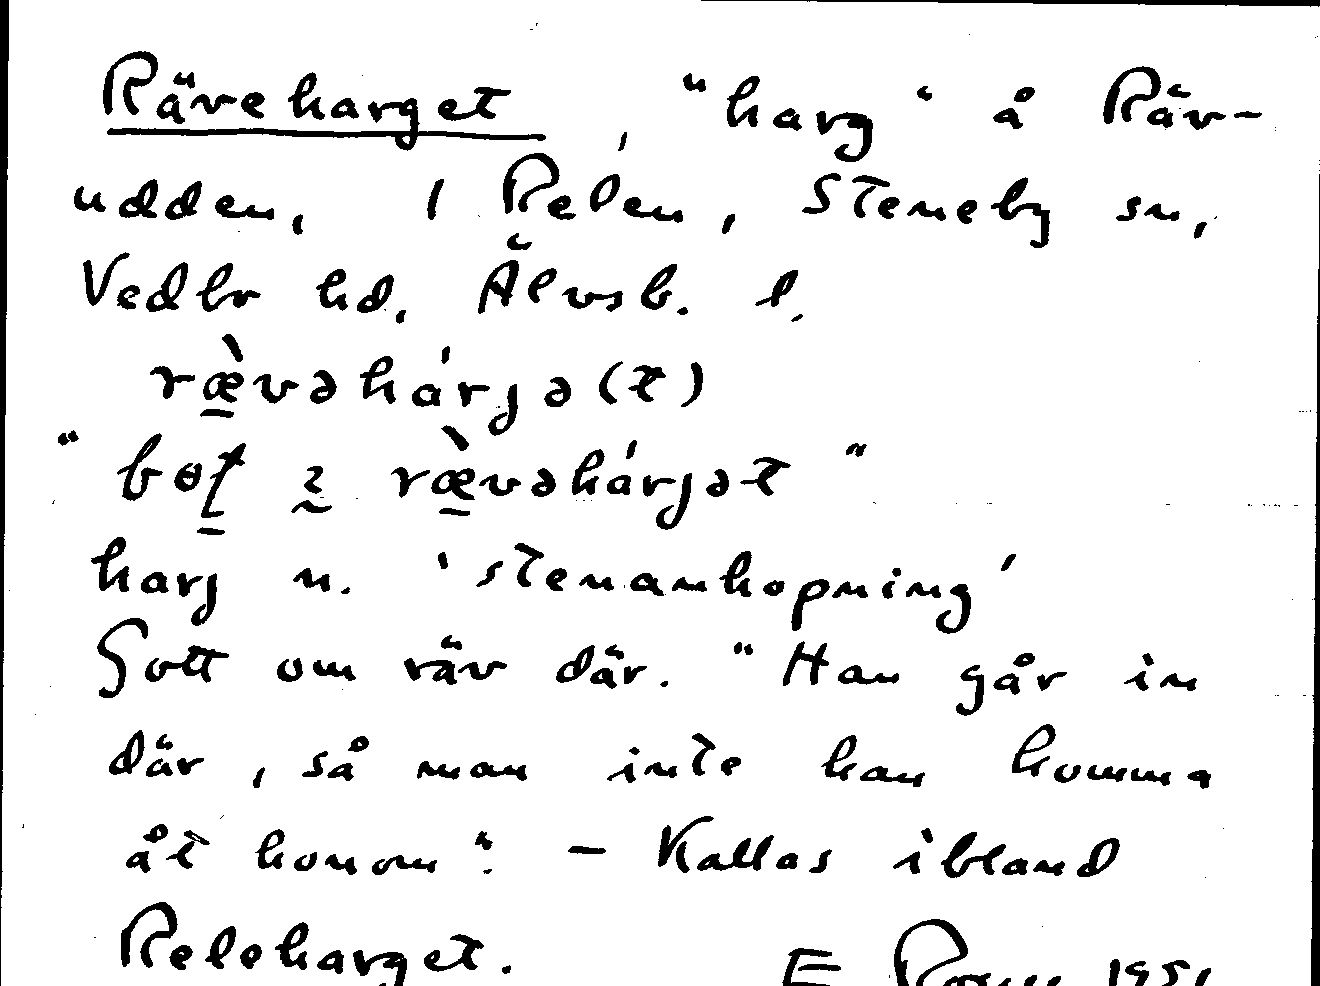 Räveharget, "harg" å Räv-
udden, i Relen, Steneby sn,
Vedbr hd. Älvsb. l.
ræ̀vəhárjə(t)
" ræ̀vəhárjət "
harj n. 'stenanhopning'
Gott om räv där. "Han går in
där, så man inte kan komma
åt honom". – Kallas ibland
Releharget.
E 1951